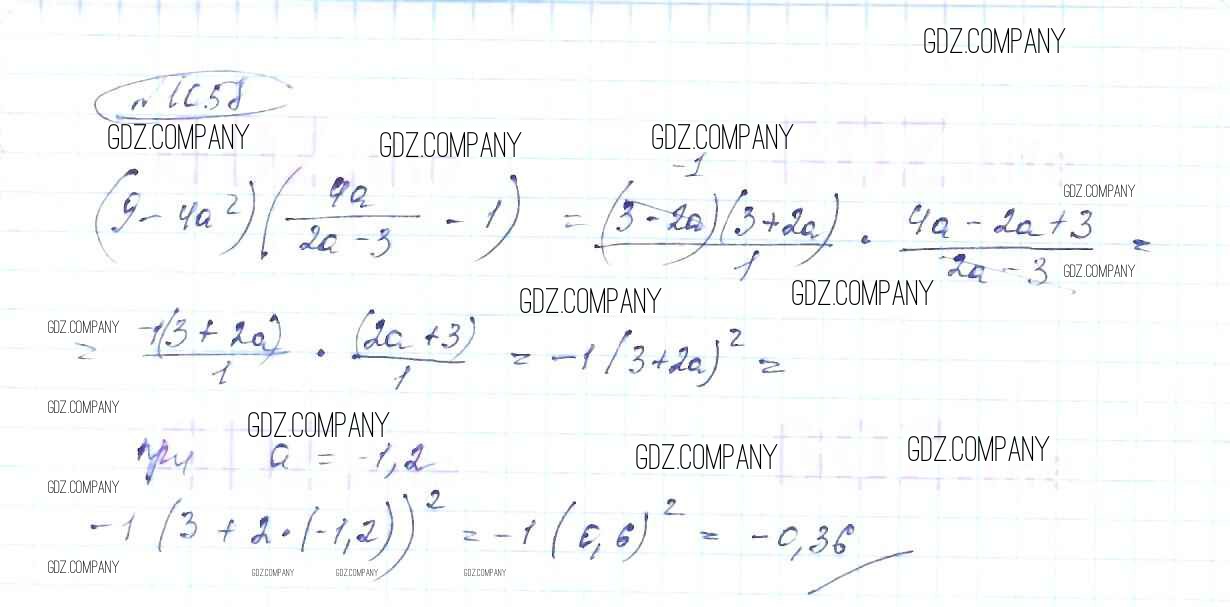 GDZ.COMPANY
GDZ.COMPANY GDZ.COMPANY GDZ.COMPANY
-1
(9 - 4a²)(4a/(2a - 3) - 1) = (3 - 2a)(3 + 2a)/1 · (4a - 2a + 3)/(2a - 3) =
GDZ.COMPANY
GDZ.COMPANY
GDZ.COMPANY GDZ.COMPANY
GDZ.COMPANY
= -1(3 + 2a)/1 · (2a + 3)/1 = -1(3 + 2a)² =
GDZ.COMPANY
GDZ.COMPANY GDZ.COMPANY GDZ.COMPANY
при a = -1,2
GDZ.COMPANY
-1(3 + 2·(-1,2))² = -1(0,6)² = -0,36
GDZ.COMPANY GDZ.COMPANY GDZ.COMPANY GDZ.COMPANY